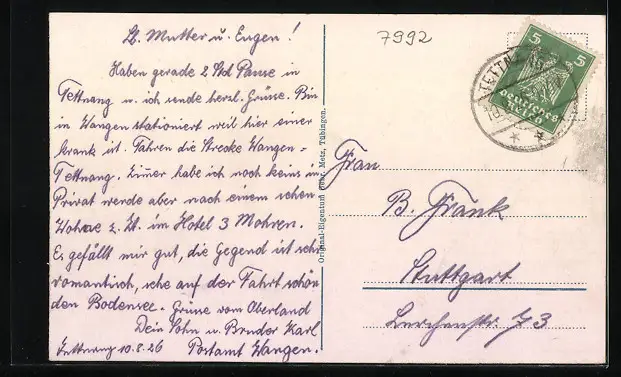 Lb. Mutter u. Eugen!
Haben gerade 2 Std Pause in
Tettnang u. ich sende herzl. Grüsse. Bin
in Wangen stationiert weil hier einer
krank ist. Fahren die Strecke Wangen-
Tettnang. Zimmer habe ich noch keins in
Privat werde aber nach einem sehen
Wohne z. Zt. im Hotel 3 Mohren.
Es gefällt mir gut, die Gegend ist sehr
romantisch, sehe auf der Fahrt schön
den Bodensee. Grüsse vom Oberland
Dein Sohn u. Bruder Karl
Tettnang 10.8.26 Postamt Wangen.
Original-Eigentum Metz, Tübingen.
7992
5 5
Deutsches
Reich
TETTN
Frau
B. Frank
Stuttgart
Lerchenstr. 73